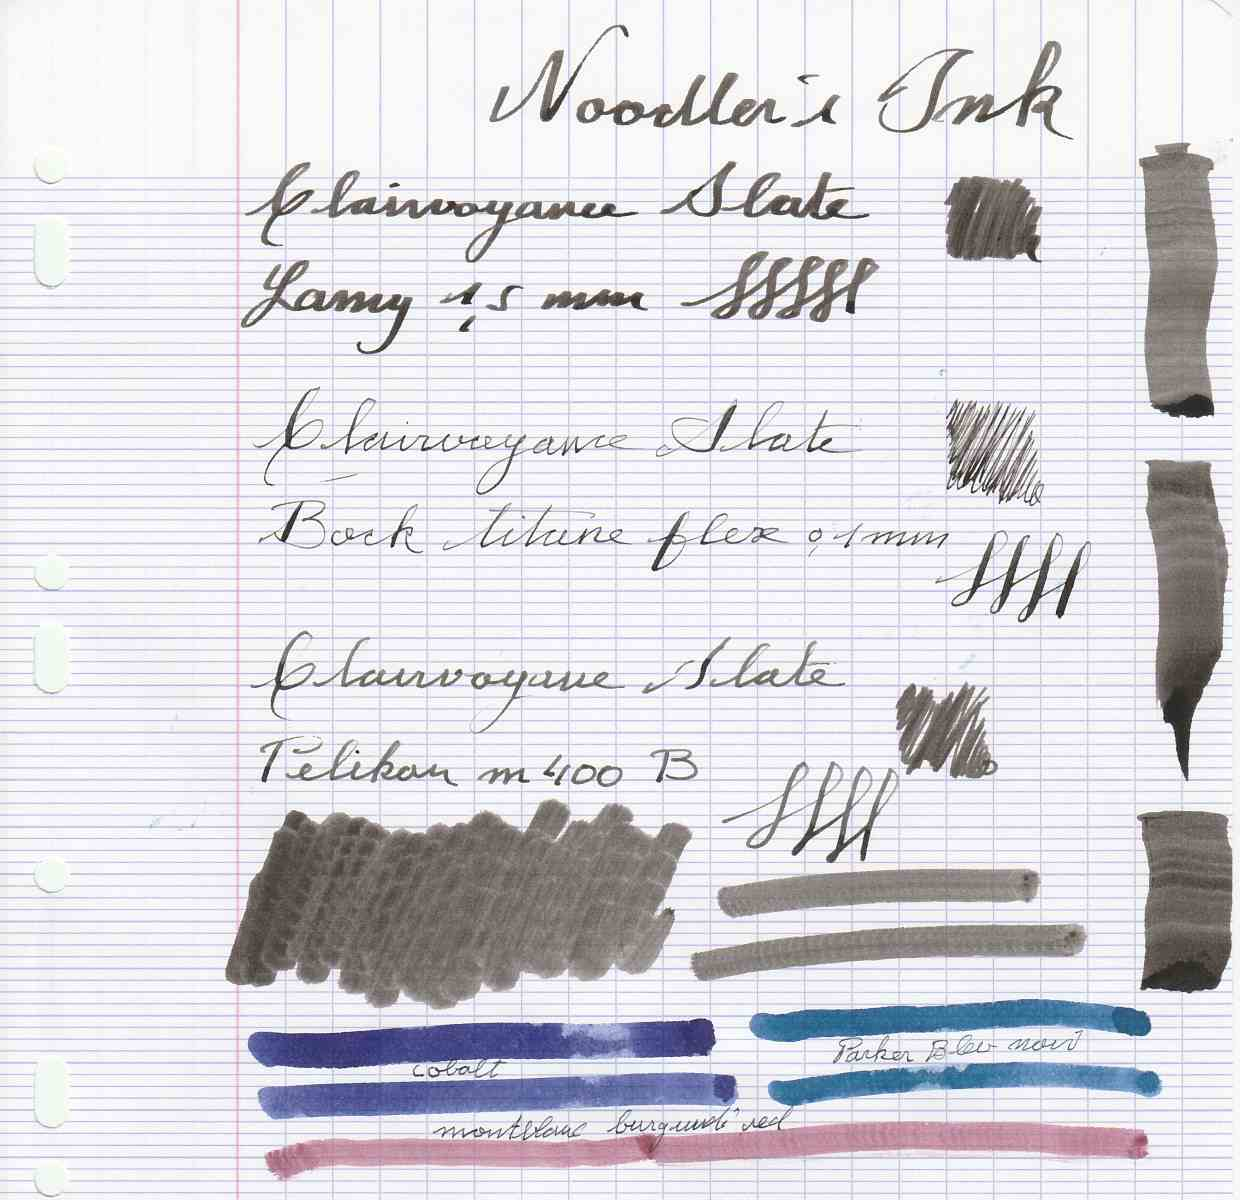 Noodler's Ink
Clairvoyance Slate
Lamy 1,5 mm
Clairvoyance Slate
Bock titane flex 0,1mm
Clairvoyance Slate
Pelikan m400 B
Parker Bleu noir
cobalt
montblanc burgundi red